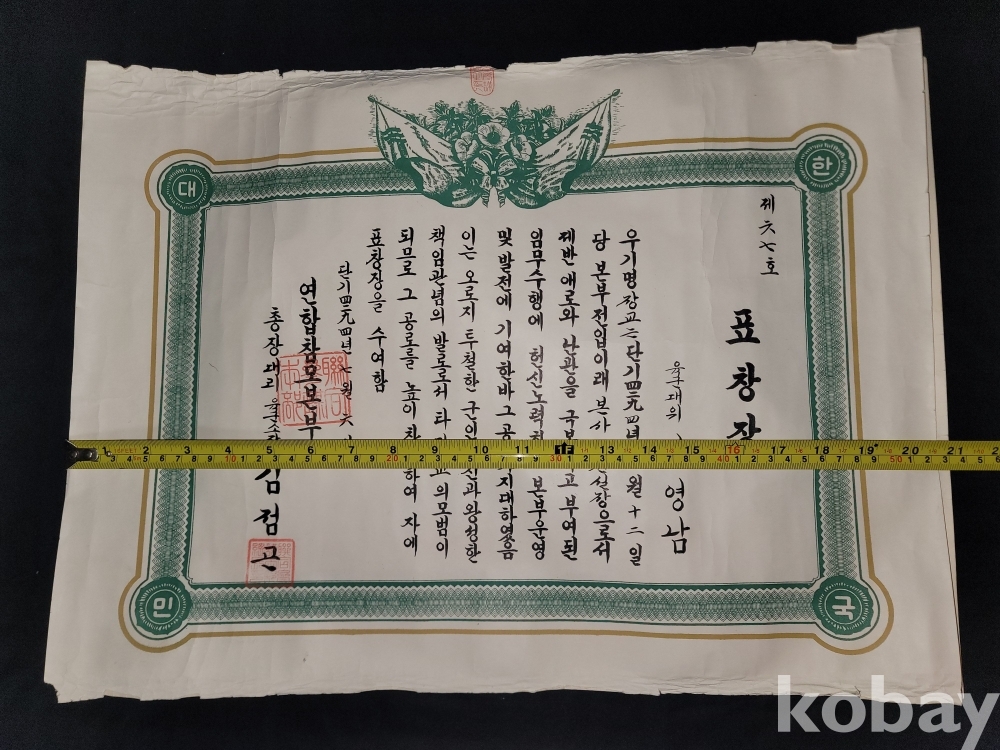 대
한
민
국
제六七호
표창장
육군대위
영남
우기명 장교는 단기四二九四년 월 十二일
당 본부전입이래 본사 실장으로서
제반 애로와 난관을 극복 고 부여된
임무수행에 헌신노력 본부운영
및 발전에 기여한바 그 공 지대하였음
이는 오로지 투철한 군인 신과 왕성한
책임관념의 발로로서 타 교의 모범이
되므로 그 공로를 높이 하여 자에
표창장을 수여함
단기四二九四년 七월 六
연합참모본부
총장대리 육군소장 김점곤
kobay